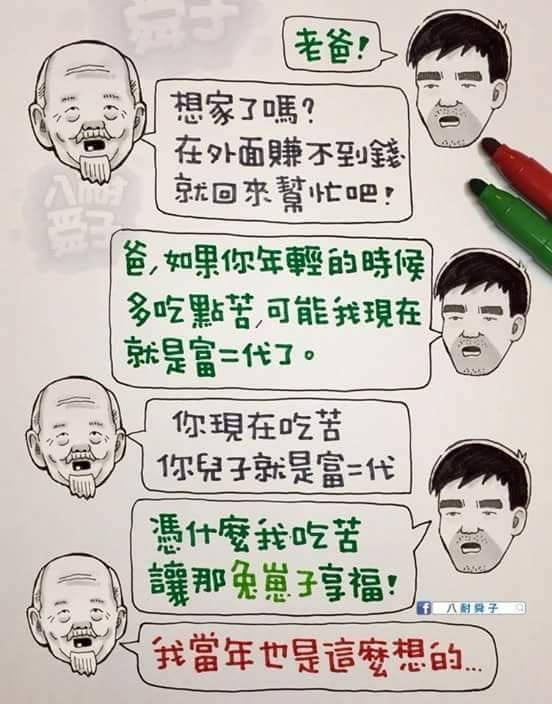 老爸!
想家了嗎?
在外面賺不到錢
就回來幫忙吧!
爸,如果你年輕的時候
多吃點苦,可能我現在
就是富二代了。
你現在吃苦
你兒子就是富二代
憑什麼我吃苦
讓那兔崽子享福!
八耐舜子
我當年也是這麼想的...
八耐
舜子